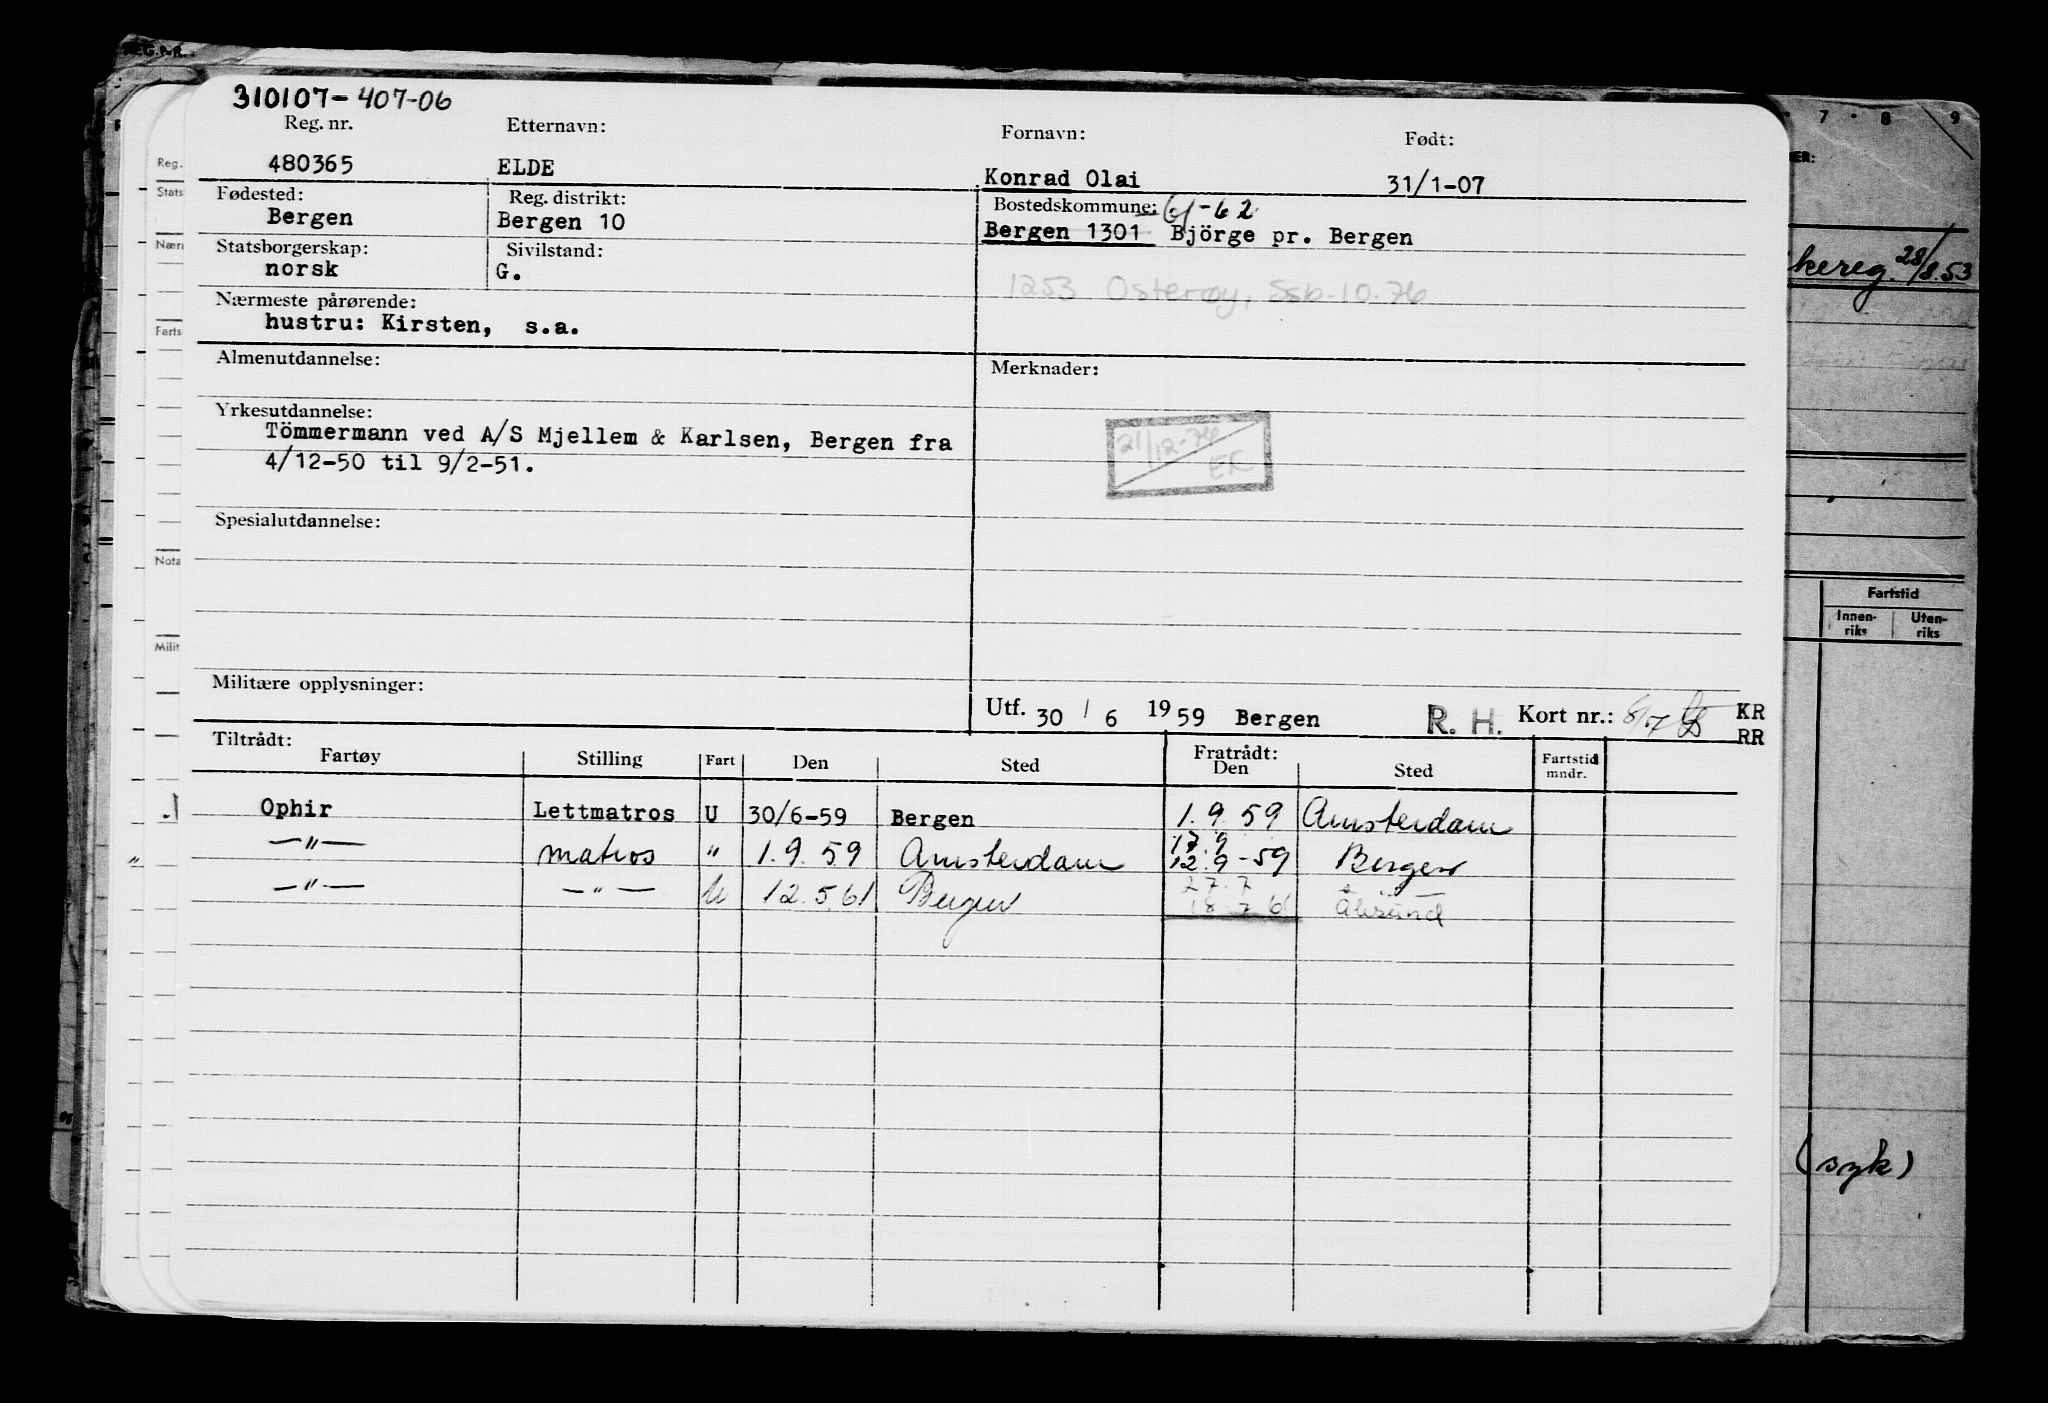 310107-407-06
Reg. nr. Etternavn: Fornavn: Født:
480365 ELDE Konrad Olai 31/1-07
Fødested: Reg. distrikt: Bostedskommune: 61-62
Bergen Bergen 10 Bergen 1301 Björge pr. Bergen
Statsborgerskap: Sivilstand:
norsk G.
1253 Osterøy, Ssb. 10.76
Nærmeste pårørende:
hustru: Kirsten, s.a.
Almenutdannelse: Merknader:
Yrkesutdannelse:
Tömmermann ved A/S Mjellem & Karlsen, Bergen fra
4/12-50 til 9/2-51.
21/12-76
EK
Spesialutdannelse:
Militære opplysninger:
Utf. 30 / 6 1959 Bergen R. H. Kort nr.: KR
RR
Tiltrådt: Fratrådt:
Fartøy Stilling Fart Den Sted Den Sted Fartstid mndr.
Ophir Lettmatros U 30/6-59 Bergen 1.9.59 Amsterdam
—"— matros " 1.9.59 Amsterdam 17.9 12.9-59 Bergen
—"— —"— U 12.5.61 Bergen 27.7 18.7.61 Ålesund
REG.NR.
7 8 9
28/8.53
Fartstid
Innen-riks Uten-riks
(syk)
Reg.
Stats
Nær
Farts
Nota
Milit